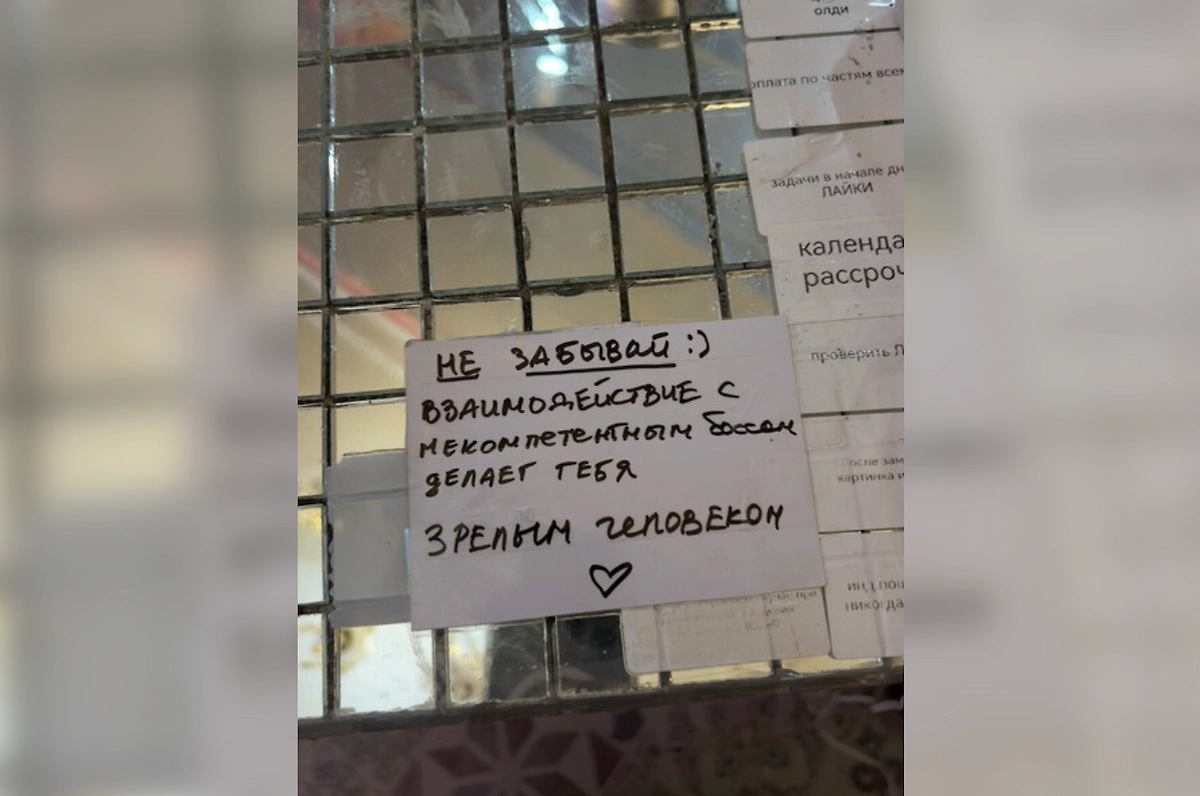 олди
оплата по частям всем
задачи в начале дн
ЛАЙКИ
календа
рассроч
проверить Л
НЕ ЗАБЫВАЙ :)
ВЗАИМОДЕЙСТВИЕ С
НЕКОМПЕТЕНТНЫМ боссом
ДЕЛАЕТ ТЕБЯ
ЗРЕЛЫМ ЧЕЛОВЕКОМ
♡
после зам
картинка и
никогда